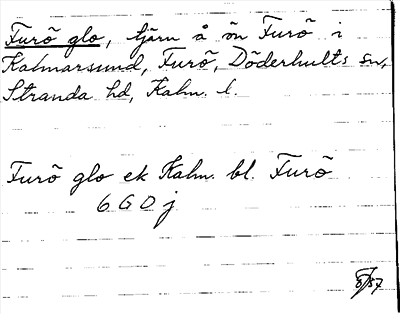 Furö glo, tjärn å ön Furö i
Kalmarsund, Furö, Döderhults sn,
Stranda hd, Kalm. l.
Furö glo ek Kalm. bl. Furö
6 G 0 j